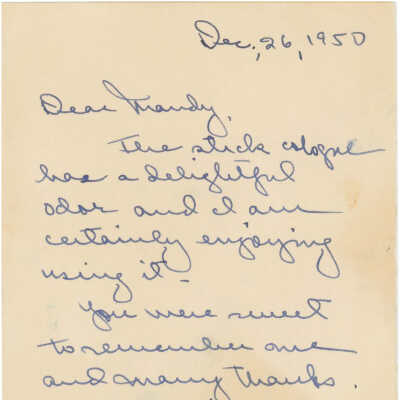 Dec., 26, 1950
Dear Mandy,
The stick cologne
has a delightful
odor and I am
certainly enjoying
using it -
You were sweet
to remember me
and many thanks.